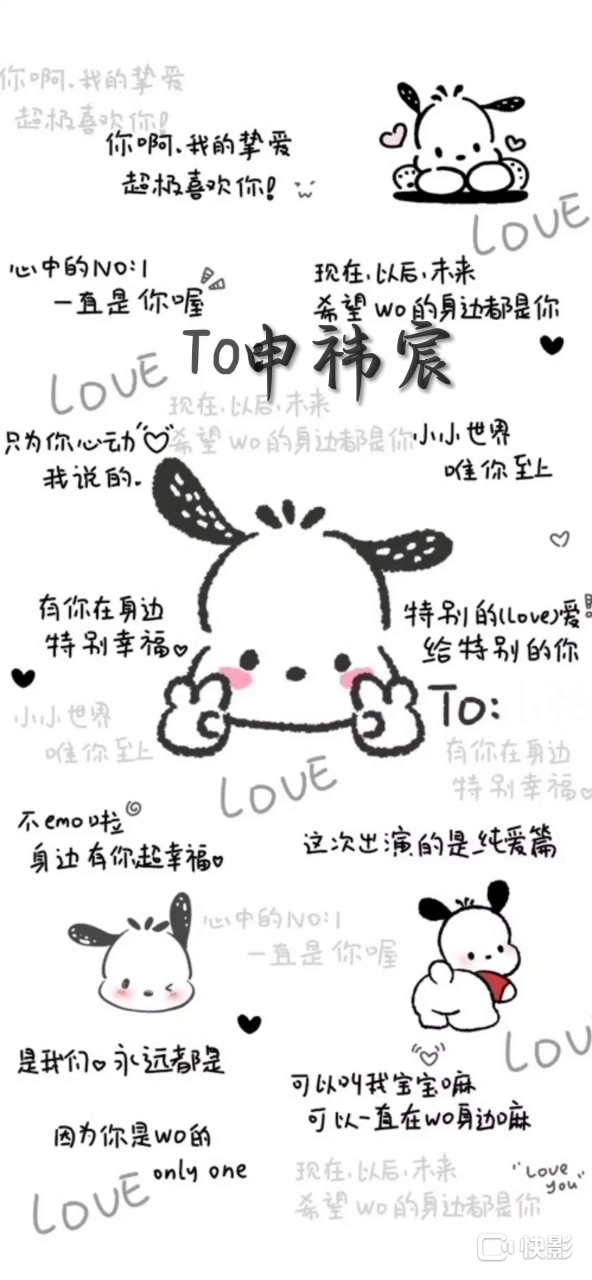 你啊、我的挚爱
超极喜欢你!
你啊、我的挚爱
超极喜欢你!
LOVE
心中的NO:1
一直是你喔
现在、以后、未来
希望wo的身边都是你
To申祎宸
LOVE
现在、以后、未来
希望wo的身边都是你
只为你心动
我说的.
小小世界
唯你至上
有你在身边
特别幸福
特别的(Love)爱
给特别的你
To:
小小世界
唯你至上
有你在身边
特别幸福
LOVE
不emo啦
身边有你超幸福
这次出演的是纯爱篇
心中的NO:1
一直是你喔
LOVE
是我们 永远都是
可以叫我宝宝嘛
可以一直在wo身边嘛
因为你是wo的
only one
现在、以后、未来
希望wo的身边都是你
"Love
you"
LOVE
快影